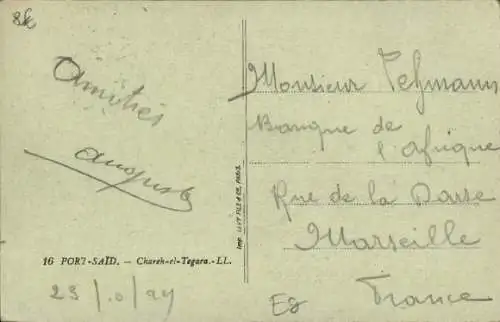 Amitiés
Auguste
16 PORT-SAÏD. — Chareh-el-Tegara. - LL.
Imp. LEVY FILS & Cie, PARIS
Monsieur
Banque de
l'afrique
Rue de la Darse
Marseille
France
Eg